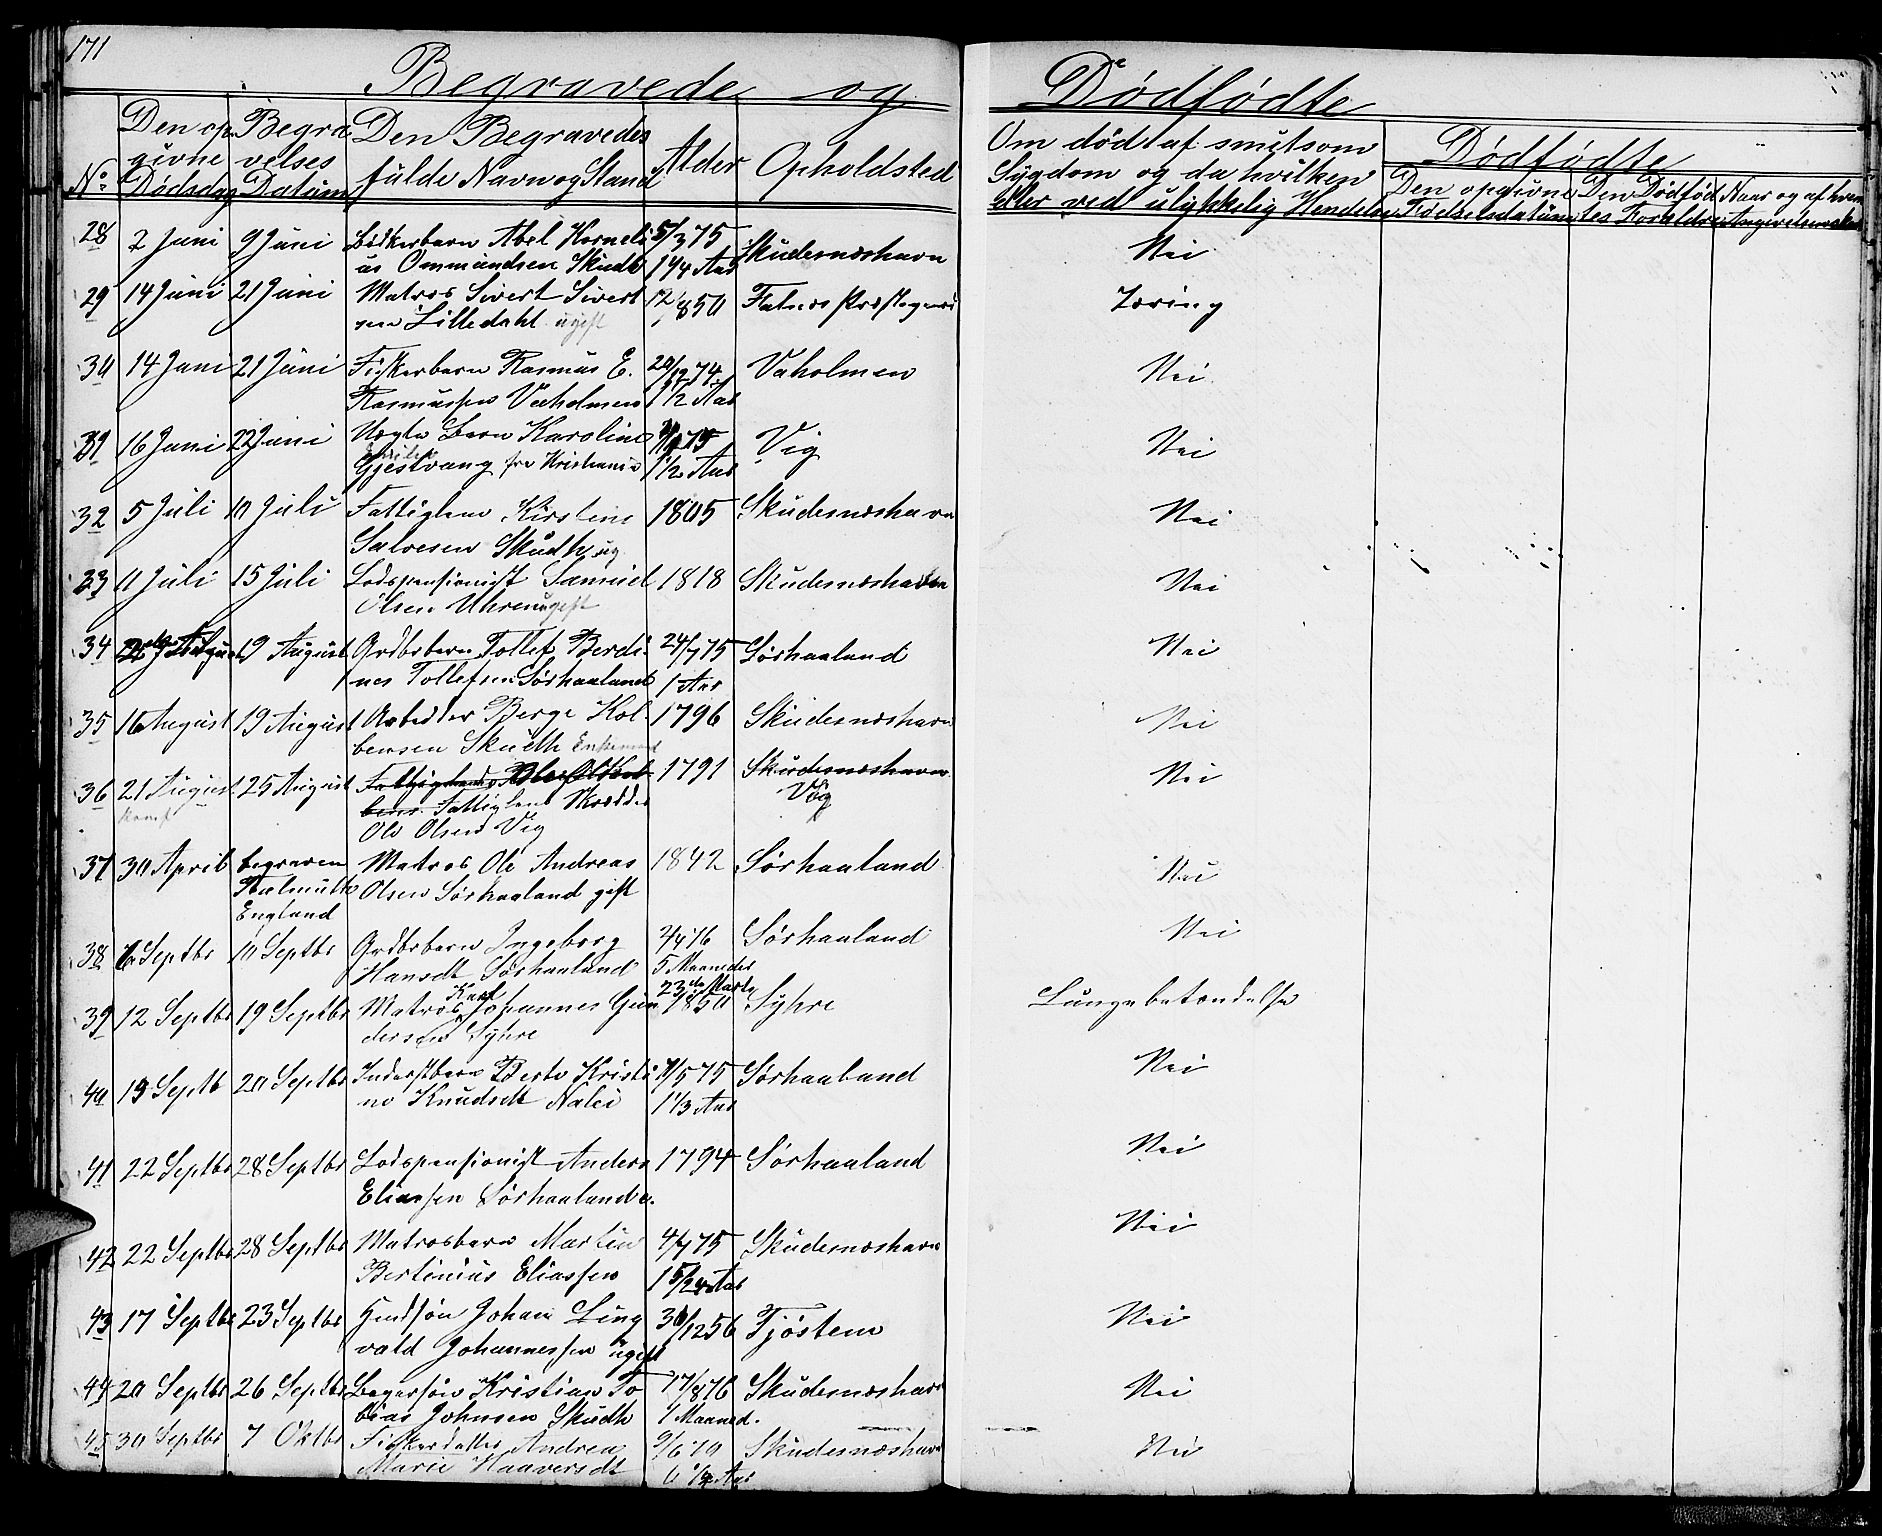 171
Begravede og Dødfødte
No: Den opgivne Dødsdag Begravelses Datum Den Begravedes fulde Navn og Stand Alder Opholdsted Om død af smitsom Sygdom og da hvilken eller ved ulykkelig Hendelse Dødfødte Den opgivne Fødselsdatum Den Dødfødtes Forældre Naar og af hvem
28 2 Juni 9 Juni Bødkerbarn Abel Korneli 5/3 75 Skudesnæshavn Nei
us Ommundsen Skudh 1 1/4 Aar
29 14 Juni 21 Juni Matros Sivert Sivert 12/ 850 Præstegjeld Tæring
sen Lilledahl ugift
30 14 Juni 21 Juni Fiskerbarn Rasmus E. 20/12 74 Vaholmen Nei
Rasmussen Vaholmen 1 1/2 Aar
31 16 Juni 22 Juni Uægte Barn Karoline 75 Vig Nei
Gjestvang fra Kristiania 1 1/2 Aar
32 5 Juli 10 Juli Fattiglem Kirstine 1805 Skudesnæshavn Nei
Salvesen Skudh ug
33 11 Juli 15 Juli Lodspensionist Samuel 1818 Skudesnæshavn Nei
Olsen Uhren ugift
34 August 19 August Grdbrbarn Tollef Berdi 24/7 75 Sørhaaland Nei
nes Tollefsen Sørhaaland 1 Aar
35 16 August 19 August Arbeider Berge Kol 1796 Skudesnæshavn Nei
bensen Skudh Enkemand
36 21 August 25 August 1791 Skudesnæshavn Nei
Fattiglem Skrædder Vig
Ole Olsen Vig
37 30 April begraven Matros Ole Andreas 1842 Sørhaaland Nei
Olsen Sørhaaland gift
England
38 6 Septbr 10 Septbr Grdbrbarn Ingeborg 76 Sørhaaland Nei
Hansdt Sørhaaland 5 Maaneder
39 12 Septbr 19 Septbr Matros Karl Johannes Gun 23de Marts 1850 Syhre Lungebetændelse
dersen Syhre
40 19 Septb 20 Septbr Inderstbarn Berte Kristi /5 75 Sørhaaland Nei
ne Knudsdt Nalei 1 1/3 Aar
41 22 Septbr 28 Septbr Lodspensionist Anders 1794 Sørhaaland Nei
Eliassen Sørhaaland e.
42 22 Septbr 28 Septbr Matrosbarn Martin 4/7 75 Skudesnæshavn Nei
Bertinius Eliassen 1 5/24 Aar
43 17 Septbr 23 Septbr Johan Ling 30/12 56 Tjøstem Nei
vald Johannessen ugift
44 20 Septbr 26 Septbr Bagersøn Kristian To 17/8 76 Skudesnæshavn Nei
bias Johnsen Skudh 1 Maaned.
45 30 Septbr 7 Oktbr Fiskerdatter Andrea 9/6 70 Skudesnæshavn Nei
Marie Haaversdt 6 Aar